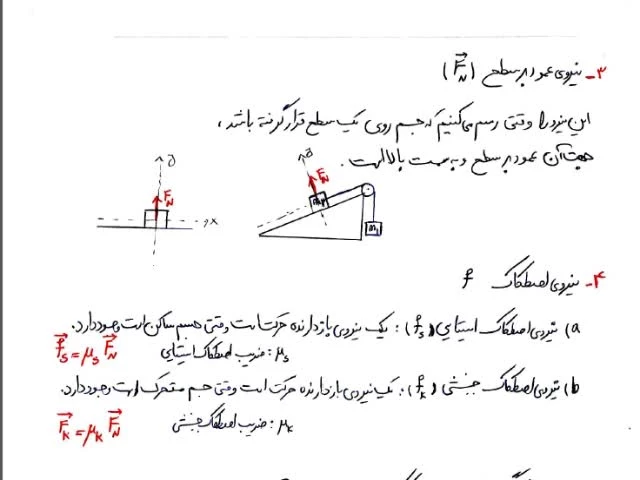 ۳- نیروی عمود بر سطح (F⃗N)
این نیرو را وقتی رسم می‌کنیم که جسم روی یک سطح قرار گرفته باشد،
جهت آن عمود بر سطح و به سمت بالا است.
y
FN
x
FN
m₁
۴- نیروی اصطکاک f
a) نیروی اصطکاک ایستایی (fs): یک نیروی بازدارنده حرکت است وقتی جسم ساکن است وجود دارد.
f⃗s = μs F⃗N
μs: ضریب اصطکاک ایستایی
b) نیروی اصطکاک جنبشی (fk): یک نیروی بازدارنده حرکت است وقتی جسم متحرک است وجود دارد.
F⃗k = μk F⃗N
μk: ضریب اصطکاک جنبشی